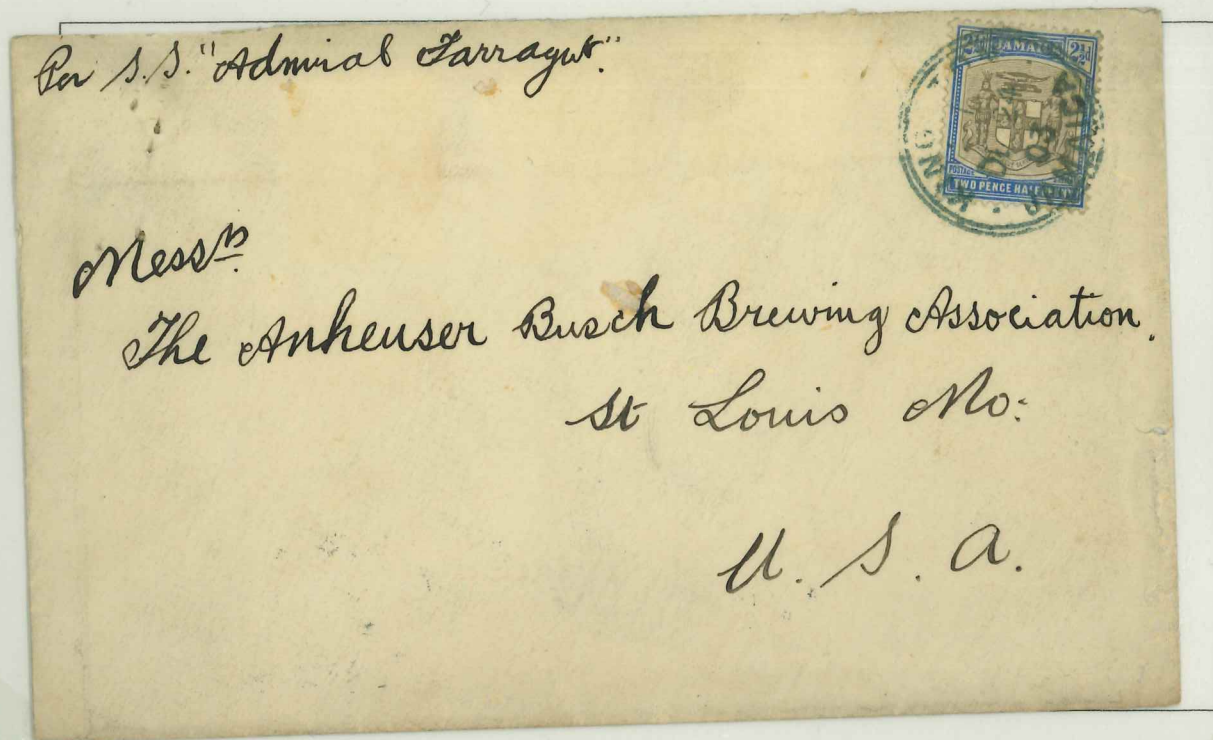 Per S.S. "Admiral Farragut".
2½ JAMAICA 2½d
POSTAGE
TWO PENCE HALF PENNY
JAMAICA
03
Messrs
The Anheuser Busch Brewing Association.
St Louis Mo:
U. S. A.